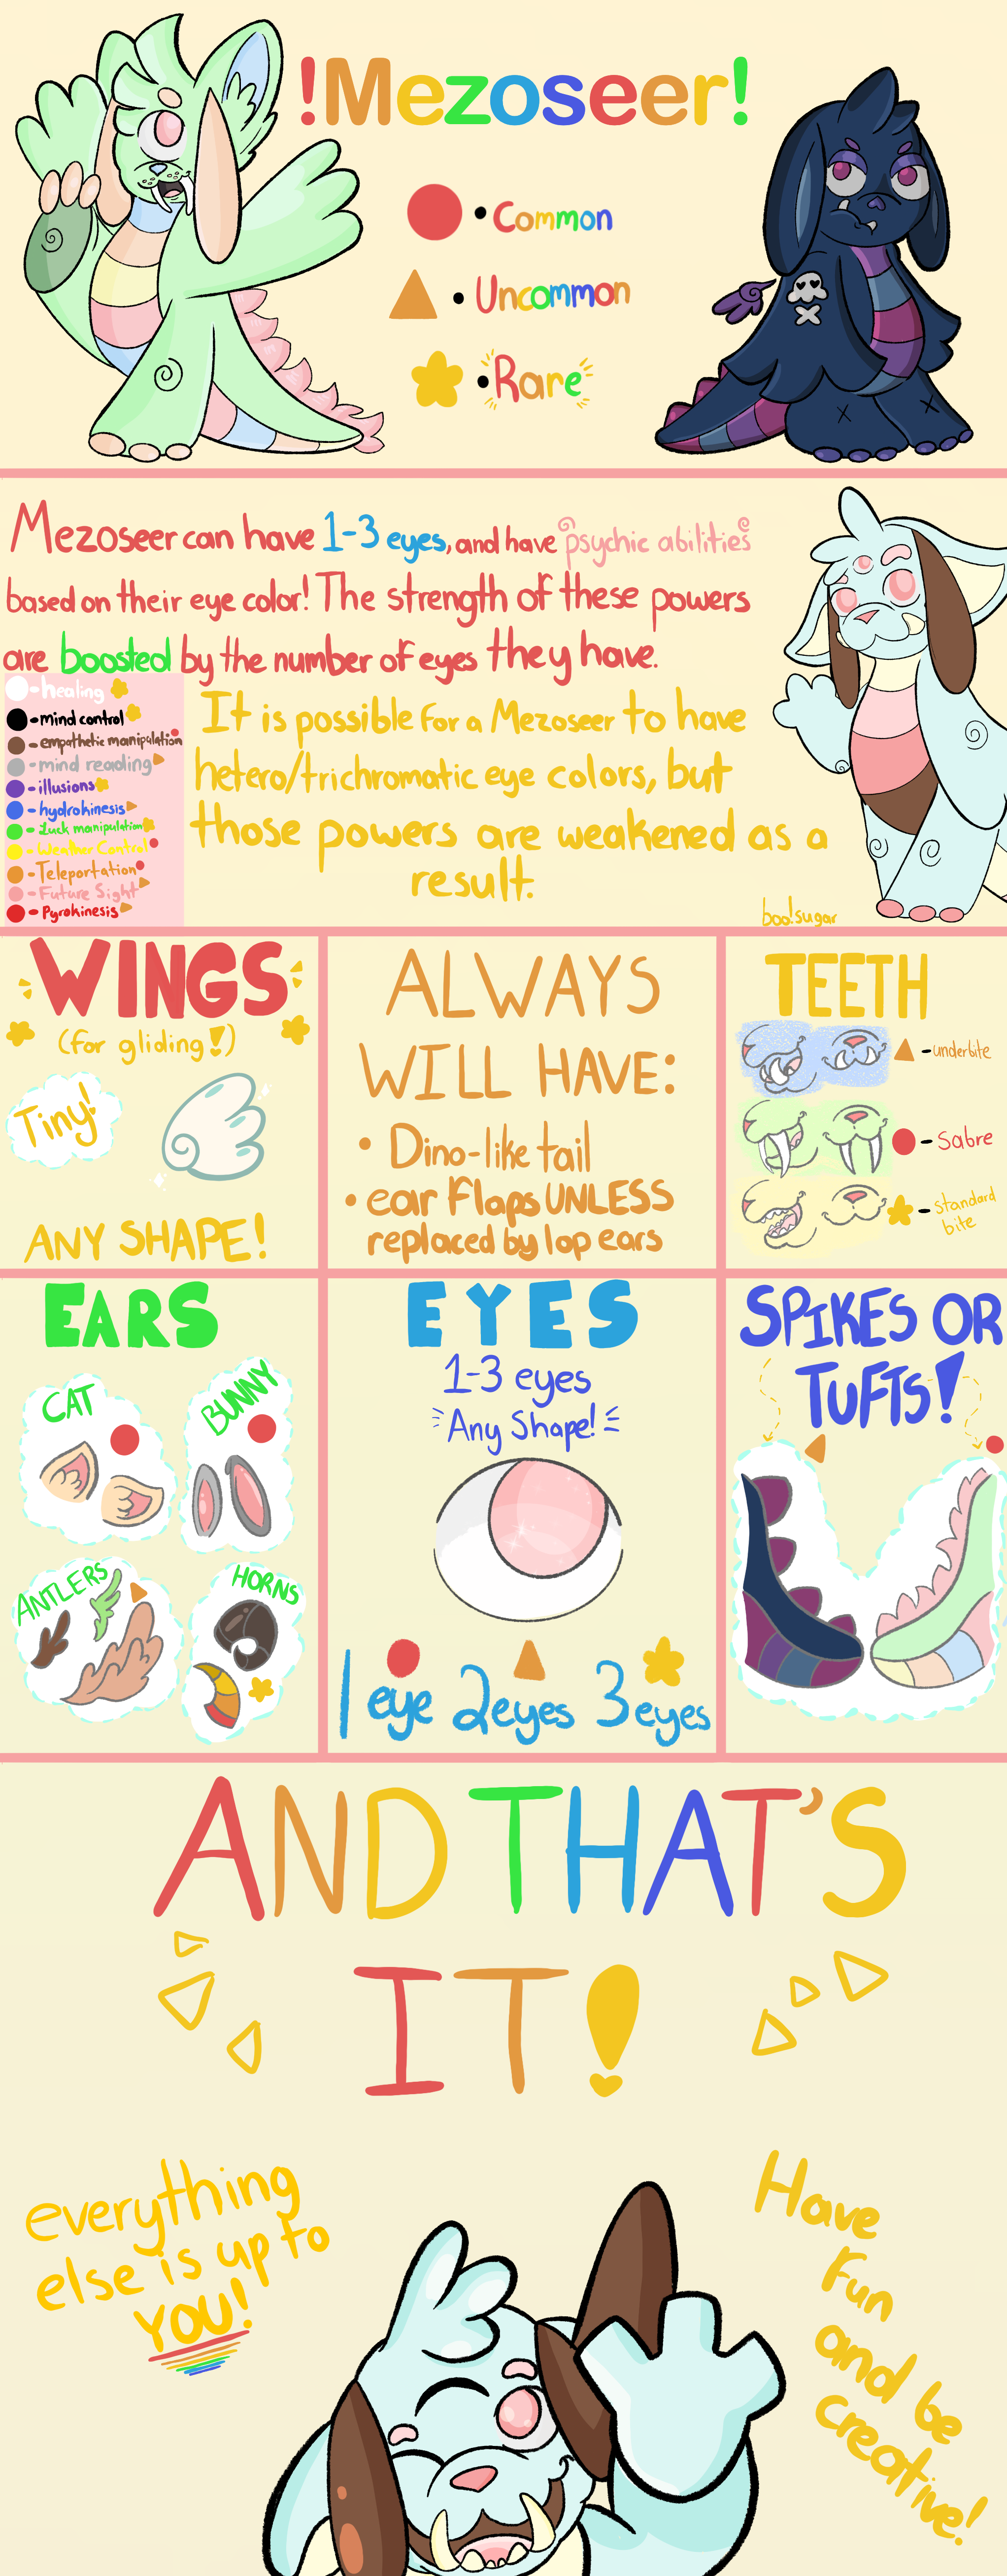 !Mezoseer!
• Common
• Uncommon
• Rare
Mezoseer can have 1-3 eyes, and have psychic abilities
based on their eye color! The strength of these powers
are boosted by the number of eyes they have.
- healing
- mind control
- empathetic manipulation
- mind reading
- illusions
- hydrokinesis
- Luck manipulation
- Weather Control
- Teleportation
- Future Sight
- Pyrokinesis
It is possible for a Mezoseer to have
hetero/trichromatic eye colors, but
those powers are weakened as a
result.
boo!sugar
WINGS
(for gliding!)
Tiny!
ANY SHAPE!
ALWAYS
WILL HAVE:
• Dino-like tail
• ear flaps UNLESS
replaced by lop ears
TEETH
- underbite
- Sabre
- standard
bite
EARS
CAT
BUNNY
ANTLERS
HORNS
EYES
1-3 eyes
Any Shape!
1 eye 2 eyes 3 eyes
SPIKES OR
TUFTS!
AND THAT'S
IT!
everything
else is up to
YOU!
Have
Fun
and be
creative!